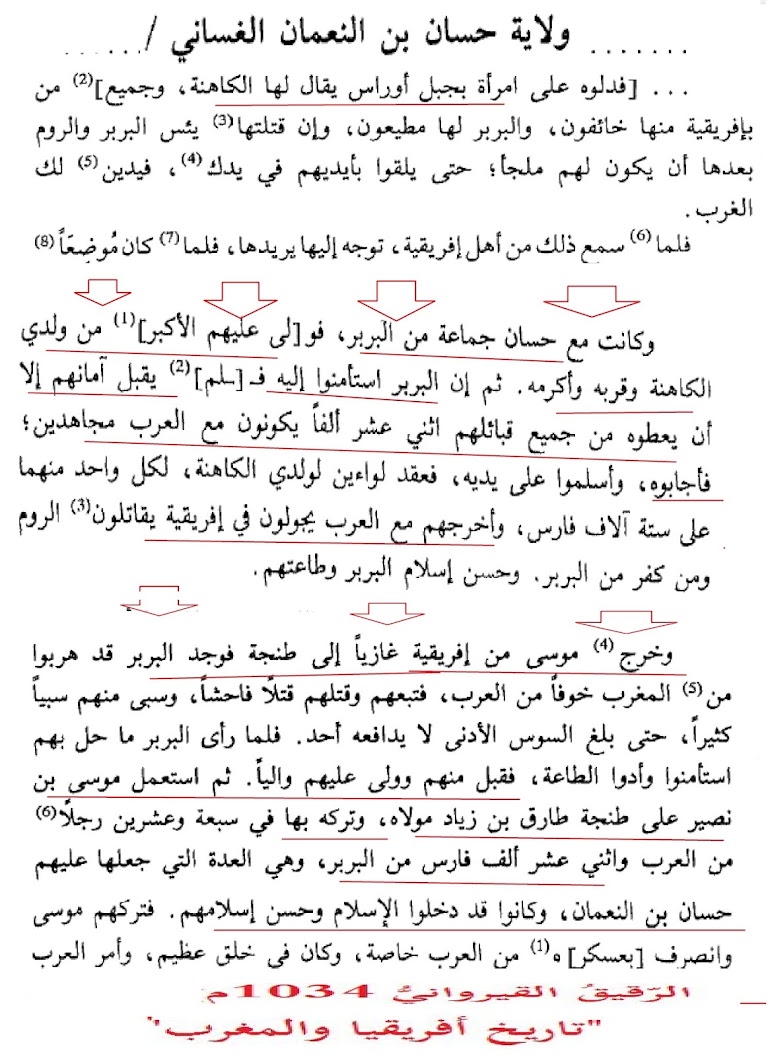 ....... ولاية حسان بن النعمان الغساني / ......
... [فدلوه على امرأة بجبل أوراس يقال لها الكاهنة، وجميع](2) من
بإفريقية منها خائفون، والبربر لها مطيعون، وإن قتلتها(3) يئس البربر والروم
بعدها أن يكون لهم ملجأ؛ حتى يلقوا بأيديهم في يدك(4)، فيدين(5) لك
الغرب.
فلما(6) سمع ذلك من أهل إفريقية، توجه إليها يريدها، فلما(7) كان مُوضِعَاً(8)
وكانت مع حسان جماعة من البربر، فو[لى عليهم الأكبر](1) من ولدي
الكاهنة وقربه وأكرمه. ثم إن البربر استأمنوا إليه فـ[ـلم](2) يقبل آمانهم إلا
أن يعطوه من جميع قبائلهم اثني عشر ألفاً يكونون مع العرب مجاهدين؛
فأجابوه، وأسلموا على يديه، فعقد لواءين لولدي الكاهنة، لكل واحد منهما
على ستة آلاف فارس، وأخرجهم مع العرب يجولون في إفريقية يقاتلون(3) الروم
ومن كفر من البربر. وحسن إسلام البربر وطاعتهم.
وخرج(4) موسى من إفريقية غازياً إلى طنجة فوجد البربر قد هربوا
من(5) المغرب خوفاً من العرب، فتبعهم وقتلهم قتلًا فاحشاً، وسبى منهم سبياً
كثيراً، حتى بلغ السوس الأدنى لا يدافعه أحد. فلما رأى البربر ما حل بهم
استأمنوا وأدوا الطاعة، فقبل منهم وولى عليهم والياً. ثم استعمل موسى بن
نصير على طنجة طارق بن زياد مولاه، وتركه بها في سبعة وعشرين رجلًا(6)
من العرب واثني عشر ألف فارس من البربر، وهي العدة التي جعلها عليهم
حسان بن النعمان، وكانوا قد دخلوا الإسلام وحسن إسلامهم. فتركهم موسى
وانصرف [بعسكر]ه(1) من العرب خاصة، وكان في خلق عظيم، وأمر العرب
الرّقيقُ القيروانيُ 1034م
"تاريخ أفريقيا والمغرب"